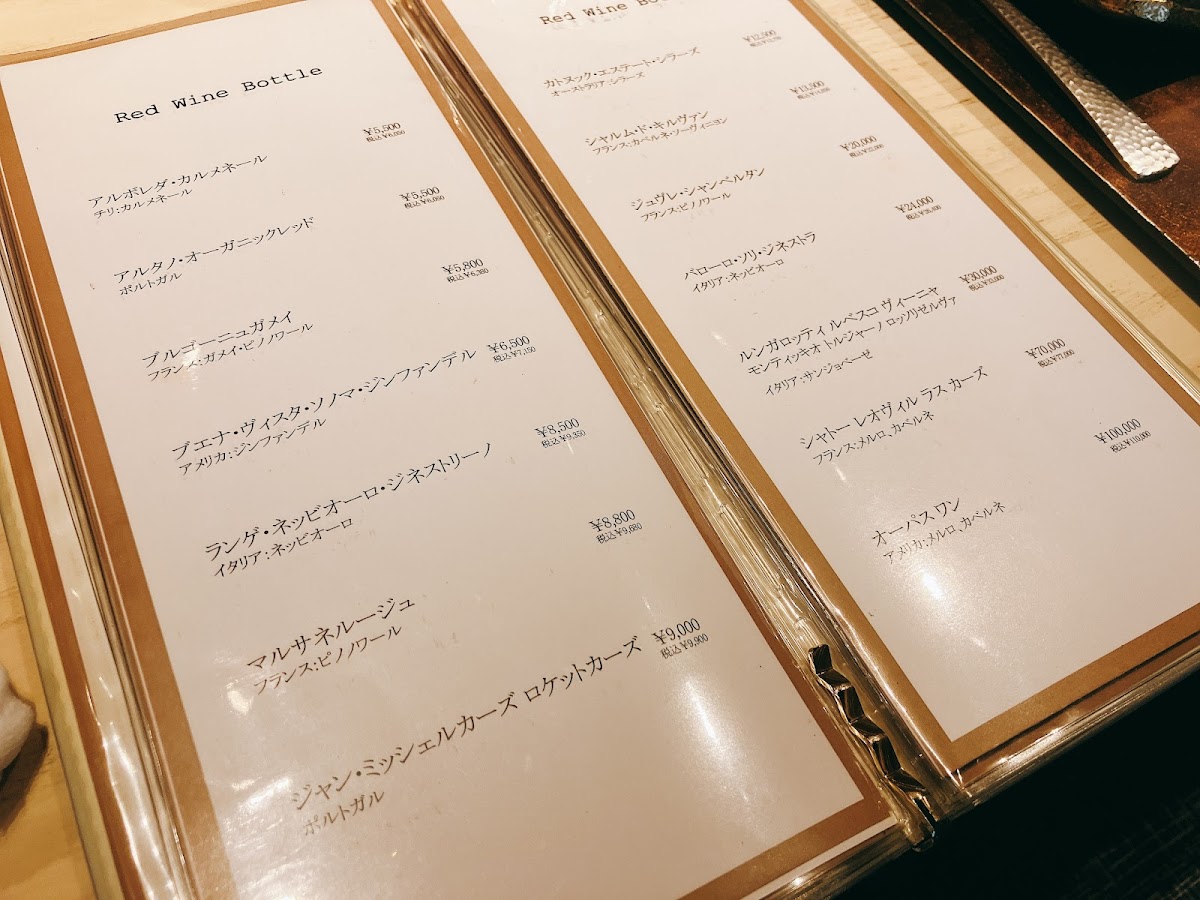 Red Wine Bottle
アルボレダ・カルメネール
チリ:カルメネール
¥5,500
税込¥6,050
アルタノ・オーガニックレッド
ポルトガル
¥5,500
税込¥6,050
ブルゴーニュガメイ
フランス:ガメイ・ピノノワール
¥5,800
税込¥6,380
ブエナ・ヴィスタ・ソノマ・ジンファンデル
アメリカ:ジンファンデル
¥6,500
税込¥7,150
ランゲ・ネッビオーロ・ジネストリーノ
イタリア:ネッビオーロ
¥8,500
税込¥9,350
マルサネルージュ
フランス:ピノノワール
¥8,800
税込¥9,680
ジャン・ミッシェルカーズ ロケットカーズ
ポルトガル
¥9,000
税込¥9,900
Red Wine
カトヌック・エステート・シラーズ
オーストラリア:シラーズ
¥12,500
シャルム・ド・キルヴァン
フランス:カベルネ・ソーヴィニヨン
¥13,500
ジュヴレ・シャンベルタン
フランス:ピノノワール
¥20,000
税込¥22,000
バローロ・ソリ・ジネストラ
イタリア:ネッビオーロ
¥24,000
税込¥26,400
ルンガロッティ ルベスコ ヴィーニャ
モンティッキオ トルジャーノ ロッソリゼルヴァ
イタリア:サンジョベーゼ
¥30,000
税込¥33,000
シャトー レオヴィル ラス カーズ
フランス:メルロ、カベルネ
¥70,000
税込¥77,000
オーパス ワン
アメリカ:メルロ、カベルネ
¥100,000
税込¥110,000